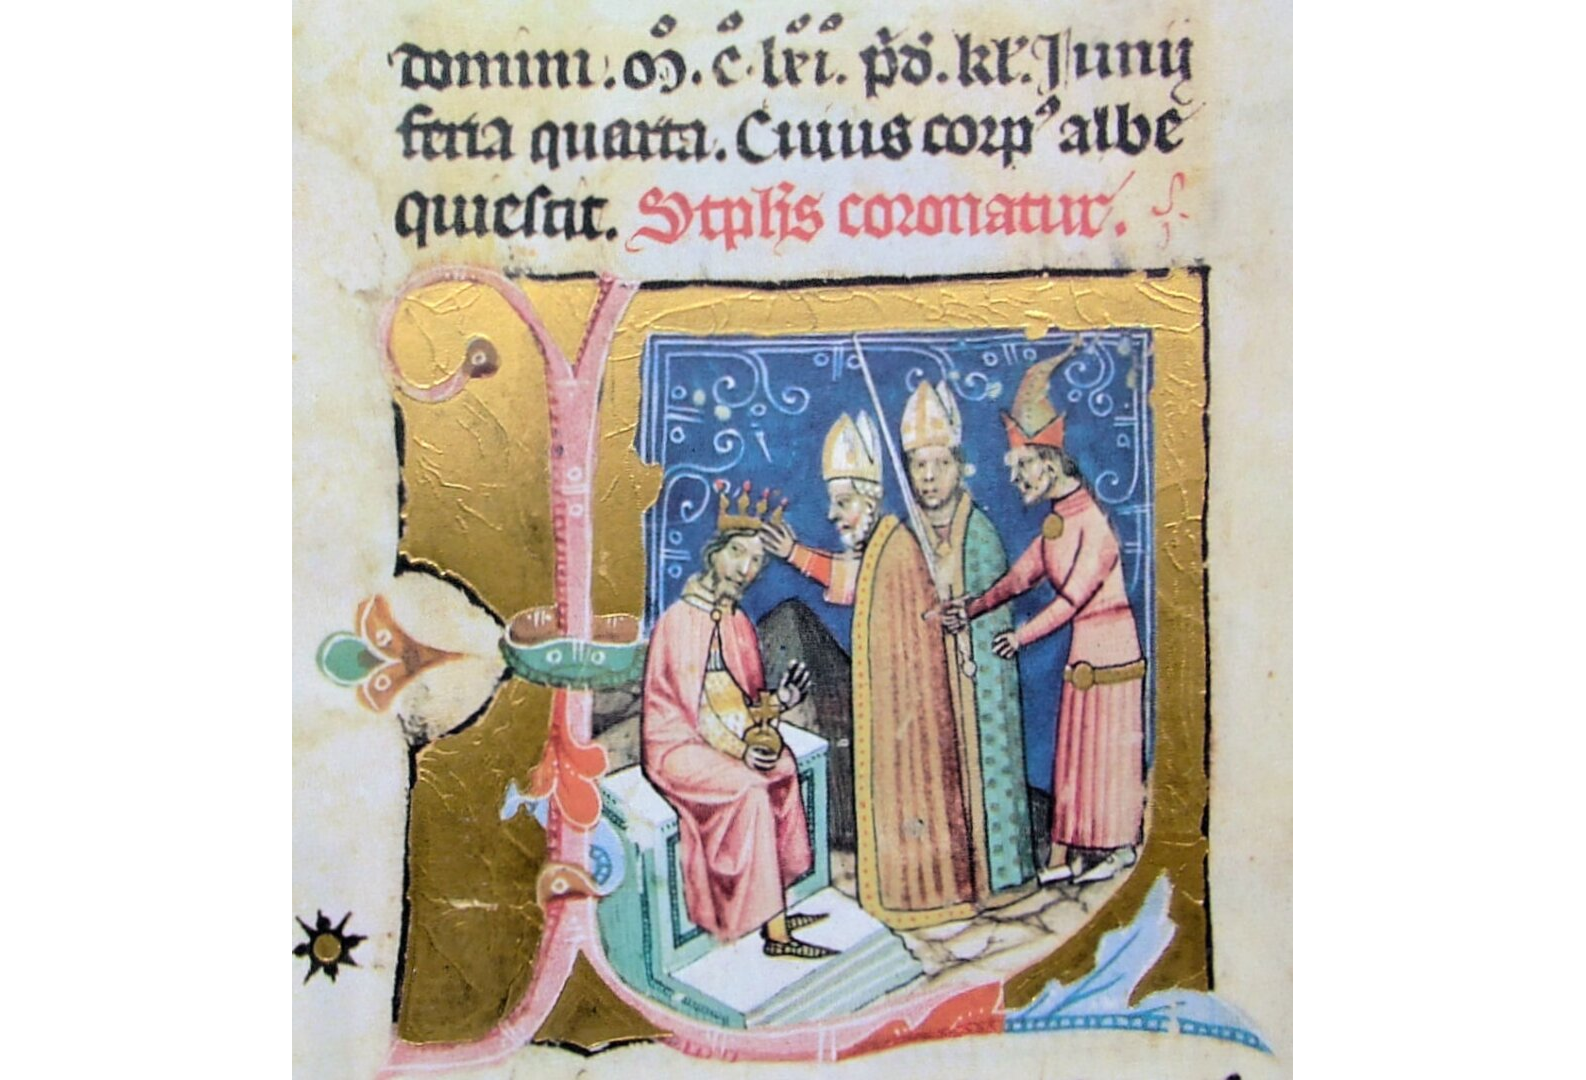 domini. Mͦ. Cͦ. lxͦiͦ. p̃d. kl'. Junij
feria quarta. Cuius corpꝰ albe
quiescit. Stephs coronatur.